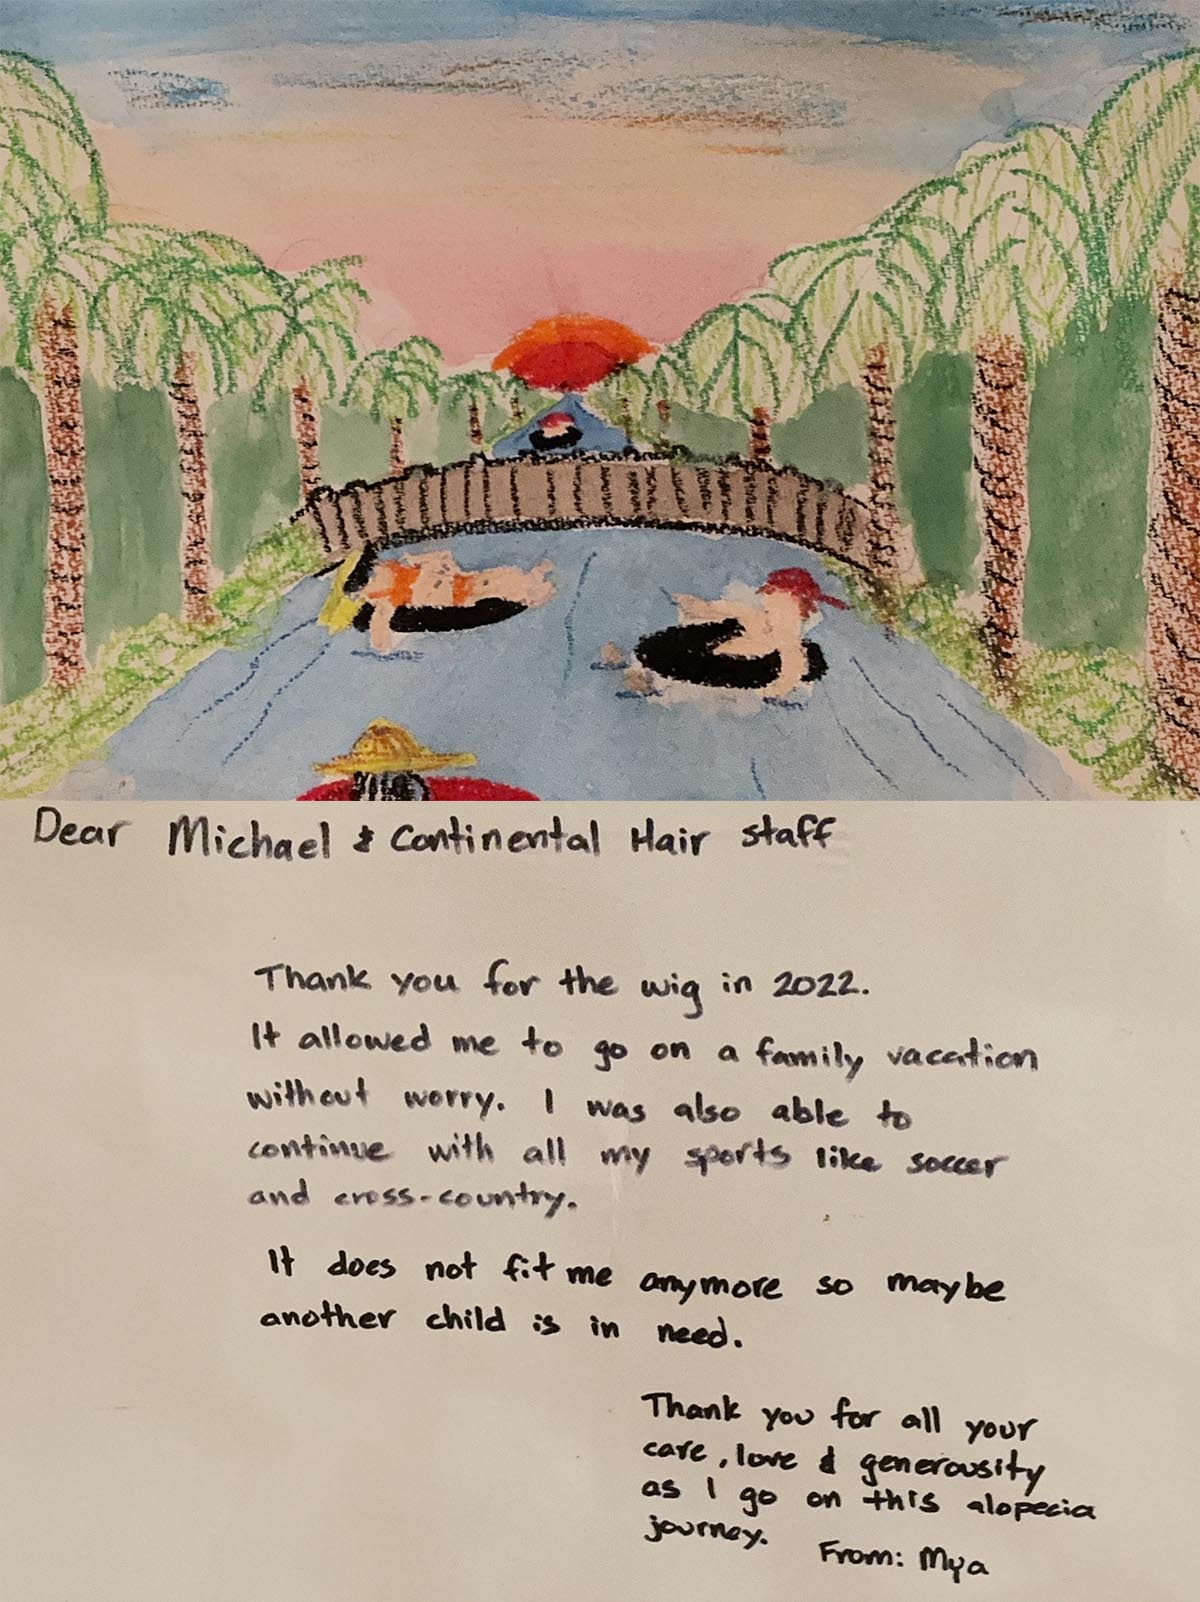 Dear Michael & Continental Hair staff
Thank you for the wig in 2022.
It allowed me to go on a family vacation
without worry. I was also able to
continue with all my sports like soccer
and cross-country.
It does not fit me anymore so maybe
another child is in need.
Thank you for all your
care, love & generousity
as I go on this alopecia
journey.
From: Mya